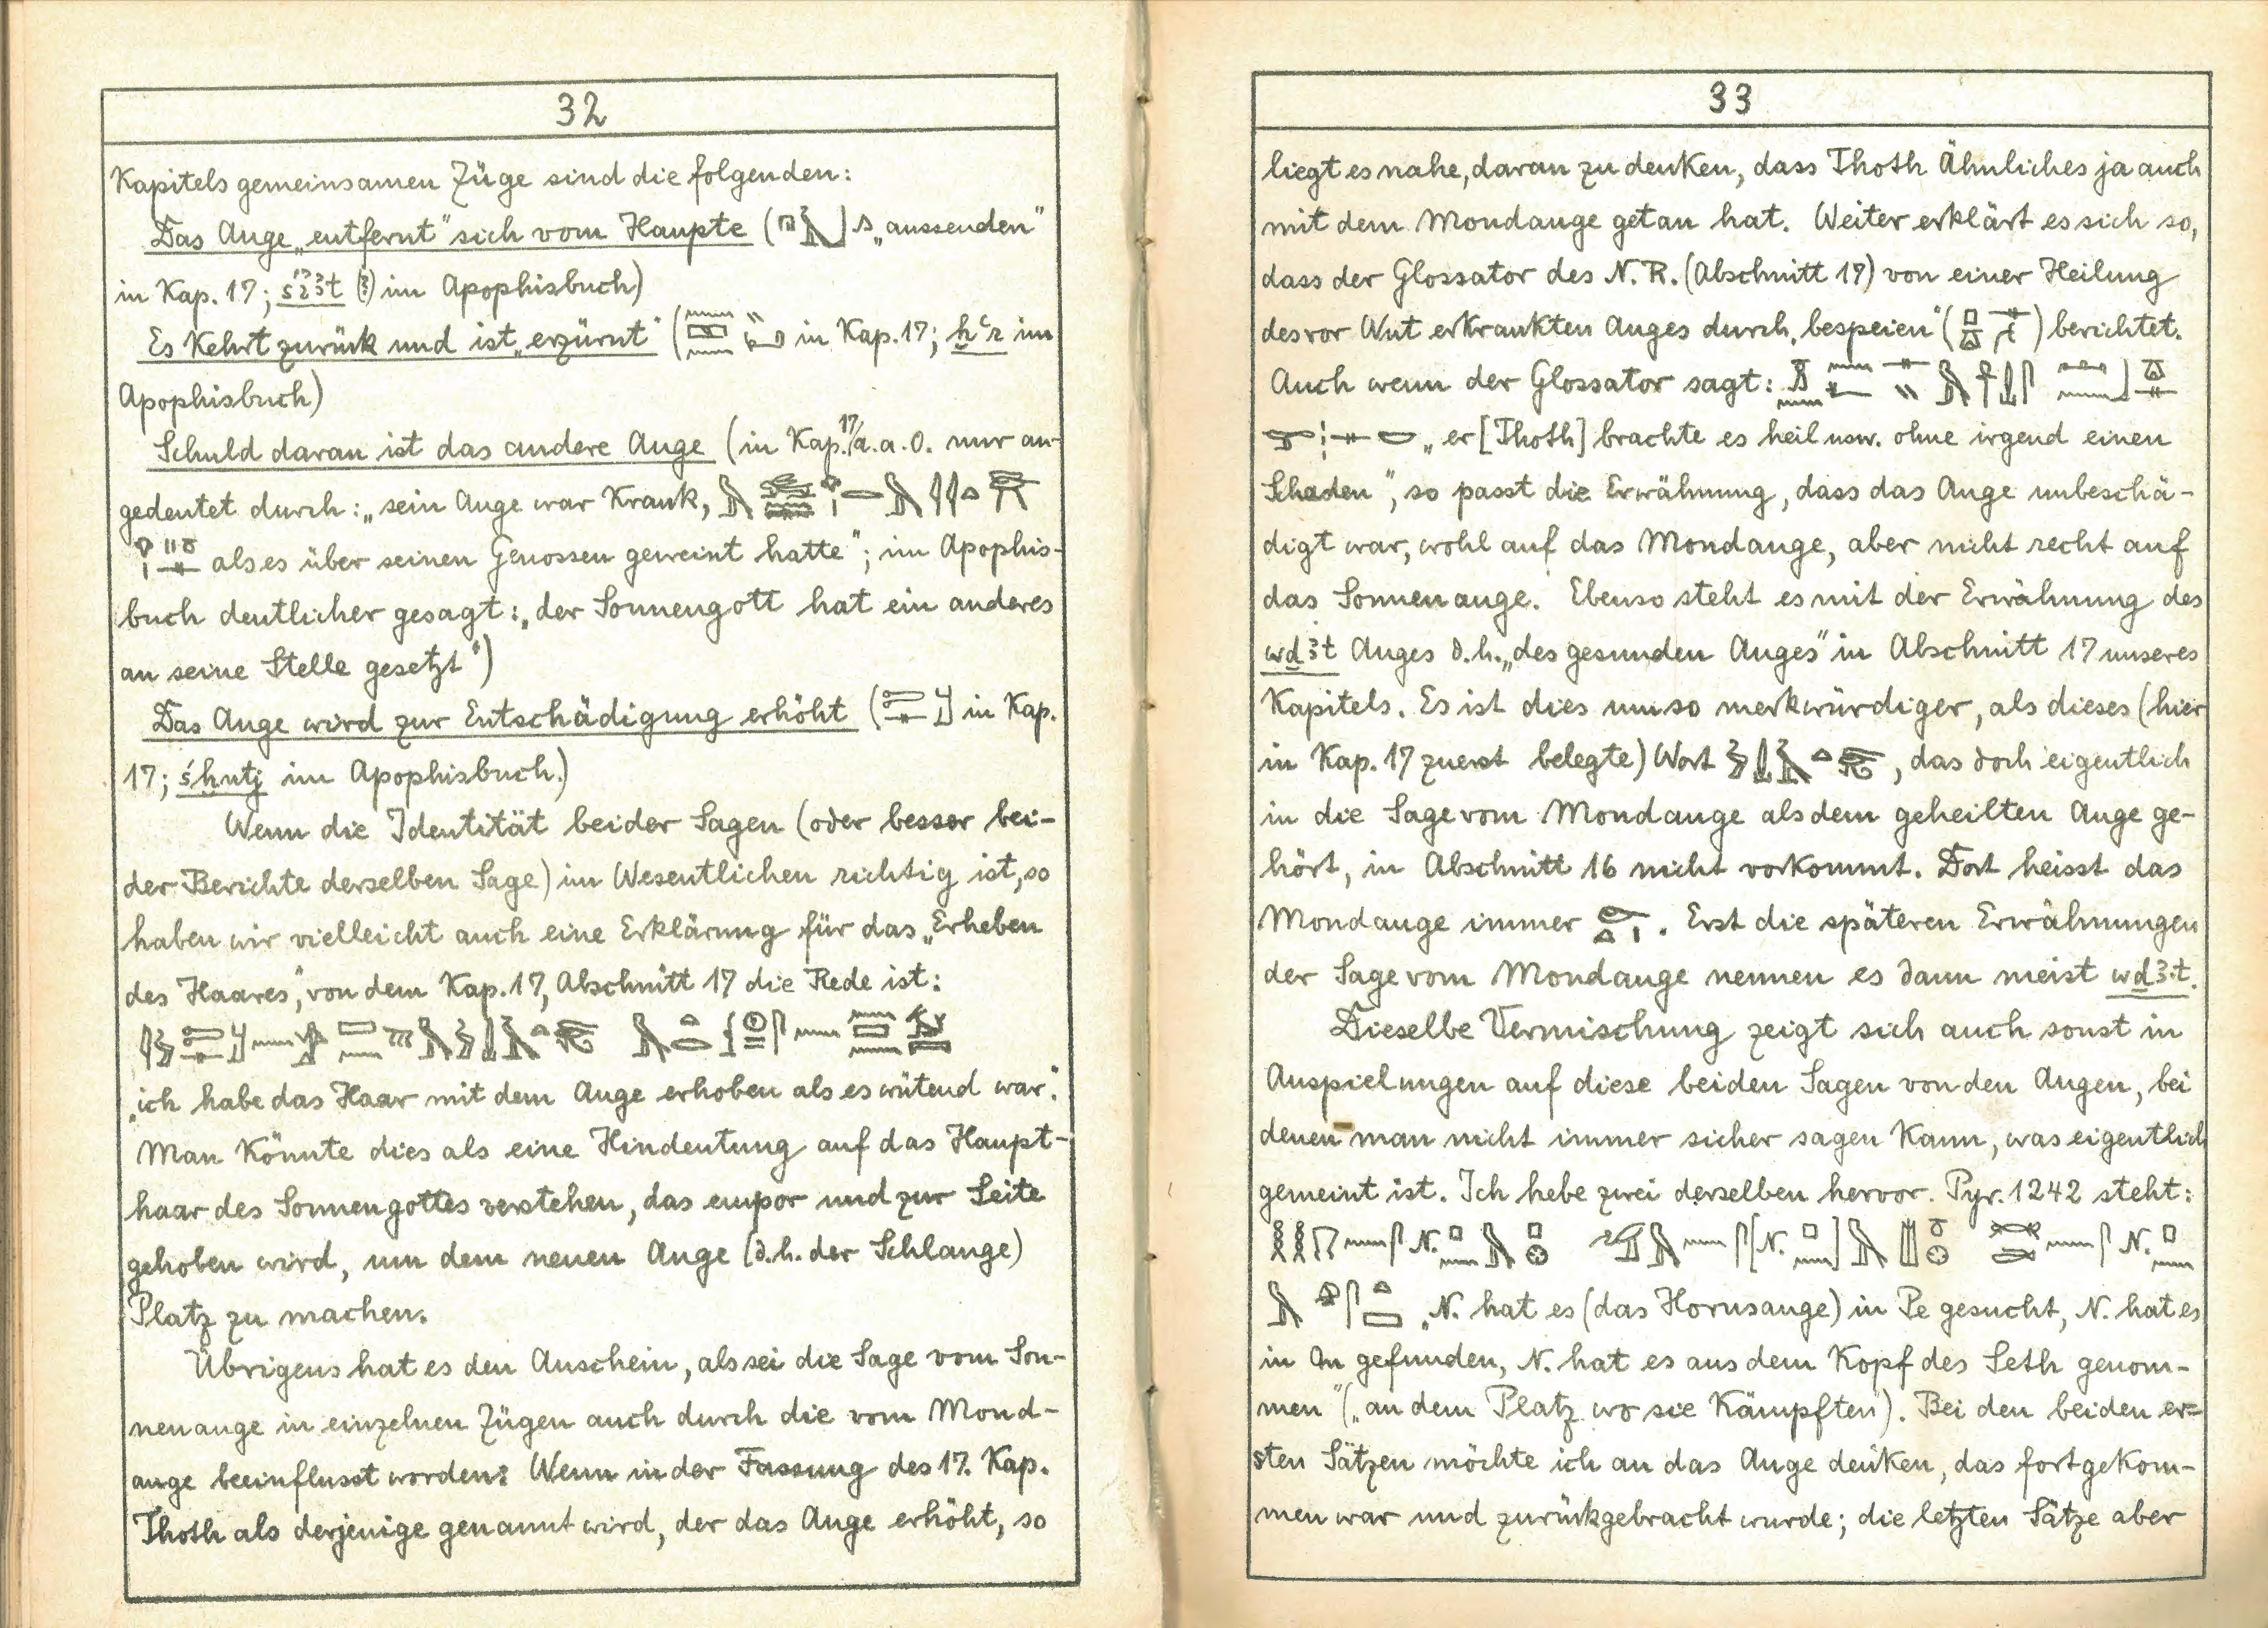 32
Kapitels gemeinsamen Züge sind die folgenden:
Das Auge „entfernt“ sich vom Haupte ( „aussenden“
in Kap. 17; (?) im Apophisbuch)
Es kehrt zurück und ist „erzürnt“ ( in Kap. 17; ḫꜥr im
Apophisbuch)
Schuld daran ist das andere Auge (in Kap. 17/a. a. O. nur an-
gedeutet durch: „sein Auge war krank,
als es über seinen Genossen geweint hatte“; im Apophis-
buch deutlicher gesagt: „der Sonnengott hat ein anderes
an seine Stelle gesetzt“)
Das Auge wird zur Entschädigung erhöht ( in Kap.
17; śḫntj im Apophisbuch.)
Wenn die Identität beider Sagen (oder besser bei-
der Berichte derselben Sage) im Wesentlichen richtig ist, so
haben wir vielleicht auch eine Erklärung für das „Erheben
des Haares“, von dem Kap. 17, Abschnitt 17 die Rede ist:
„ich habe das Haar mit dem Auge erhoben als es wütend war“.
Man könnte dies als eine Hindeutung auf das Haupt-
haar des Sonnengottes verstehen, das empor und zur Seite
gehoben wird, um dem neuen Auge (d. h. der Schlange)
Platz zu machen.
Übrigens hat es den Anschein, als sei die Sage vom Son-
nenauge in einzelnen Zügen auch durch die vom Mond-
auge beeinflusst worden: Wenn in der Fassung des 17. Kap.
Thoth als derjenige genannt wird, der das Auge erhöht, so
33
liegt es nahe, daran zu denken, dass Thoth Ähnliches ja auch
mit dem Mondauge getan hat. Weiter erklärt es sich so,
dass der Glossator des N. R. (Abschnitt 17) von einer Heilung
des vor Wut erkrankten Auges durch „bespeien“ ( ) berichtet.
Auch wenn der Glossator sagt:
„er [Thoth] brachte es heil usw. ohne irgend einen
Schaden“, so passt die Erwähnung, dass das Auge unbeschä-
digt war, wohl auf das Mondauge, aber nicht recht auf
das Sonnenauge. Ebenso steht es mit der Erwähnung des
wḏꜣt Auges d. h. „des gesunden Auges“ in Abschnitt 17 unseres
Kapitels. Es ist dies umso merkwürdiger, als dieses (hier
in Kap. 17 zuerst belegte) Wort , das doch eigentlich
in die Sage vom Mondauge als dem geheilten Auge ge-
hört, in Abschnitt 16 nicht vorkommt. Dort heisst das
Mondauge immer . Erst die späteren Erwähnungen
der Sage vom Mondauge nennen es dann meist wḏꜣ.t.
Dieselbe Vermischung zeigt sich auch sonst in
Anspielungen auf diese beiden Sagen von den Augen, bei
denen man nicht immer sicher sagen kann, was eigentlich
gemeint ist. Ich hebe zwei derselben hervor. Pyr. 1242 steht:
N. [N. ] N.
„N. hat es (das Horusauge) in Pe gesucht, N. hat es
in On gefunden, N. hat es aus dem Kopf des Seth genom-
men“ („an dem Platz wo sie kämpften“). Bei den beiden er-
sten Sätzen möchte ich an das Auge denken, das fortgekom-
men war und zurückgebracht wurde; die letzten Sätze aber